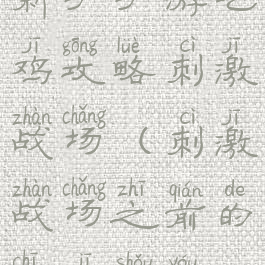 jī gōng luè cì jī
鸡攻略刺激
zhàn chǎng cì jī
战场（刺激
zhàn chǎng zhī qián de
战场之前的
chī jī shǒu yóu